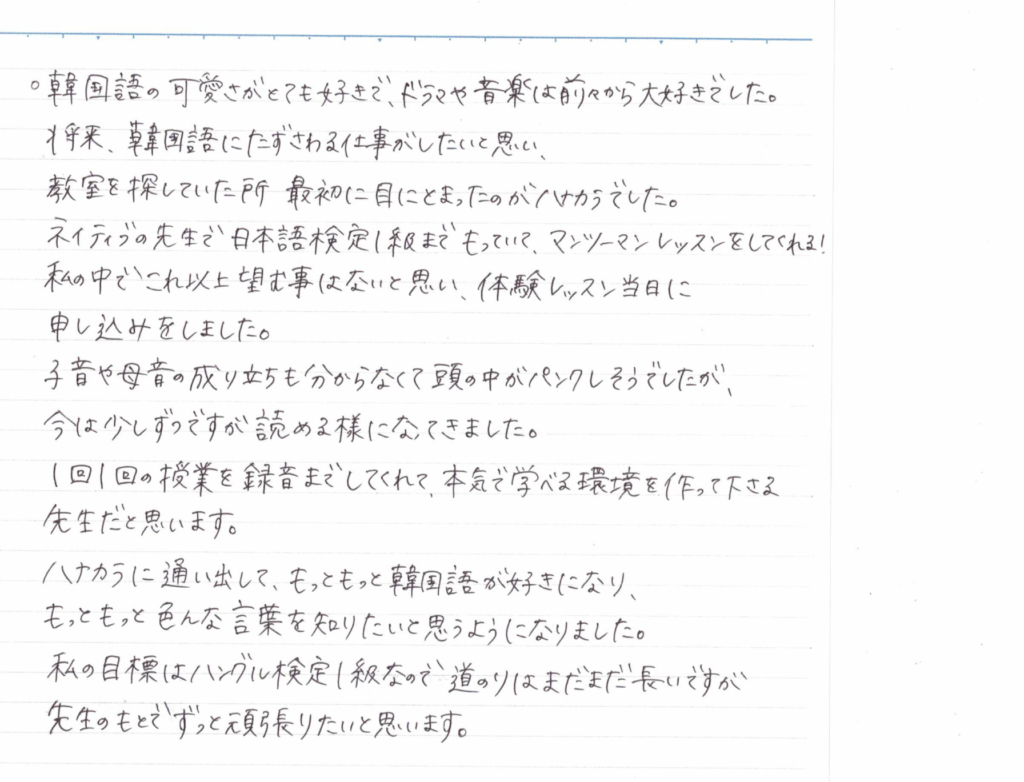 ○韓国語の可愛さがとても好きで、ドラマや音楽は前々から大好きでした。
将来、韓国語にたずさわる仕事がしたいと思い、
教室を探していた所 最初に目にとまったのがハナカラでした。
ネイティブの先生で日本語検定1級までもっていて、マンツーマンレッスンをしてくれる!
私の中でこれ以上望む事はないと思い、体験レッスン当日に
申し込みをしました。
子音や母音の成り立ちも分からなくて頭の中がパンクしそうでしたが、
今は少しずつですが読める様になってきました。
1回1回の授業を録音までしてくれて、本気で学べる環境を作って下さる
先生だと思います。
ハナカラに通い出して、もっともっと韓国語が好きになり、
もっともっと色んな言葉を知りたいと思うようになりました。
私の目標はハングル検定1級なので道のりはまだまだ長いですが
先生のもとでずっと頑張りたいと思います。